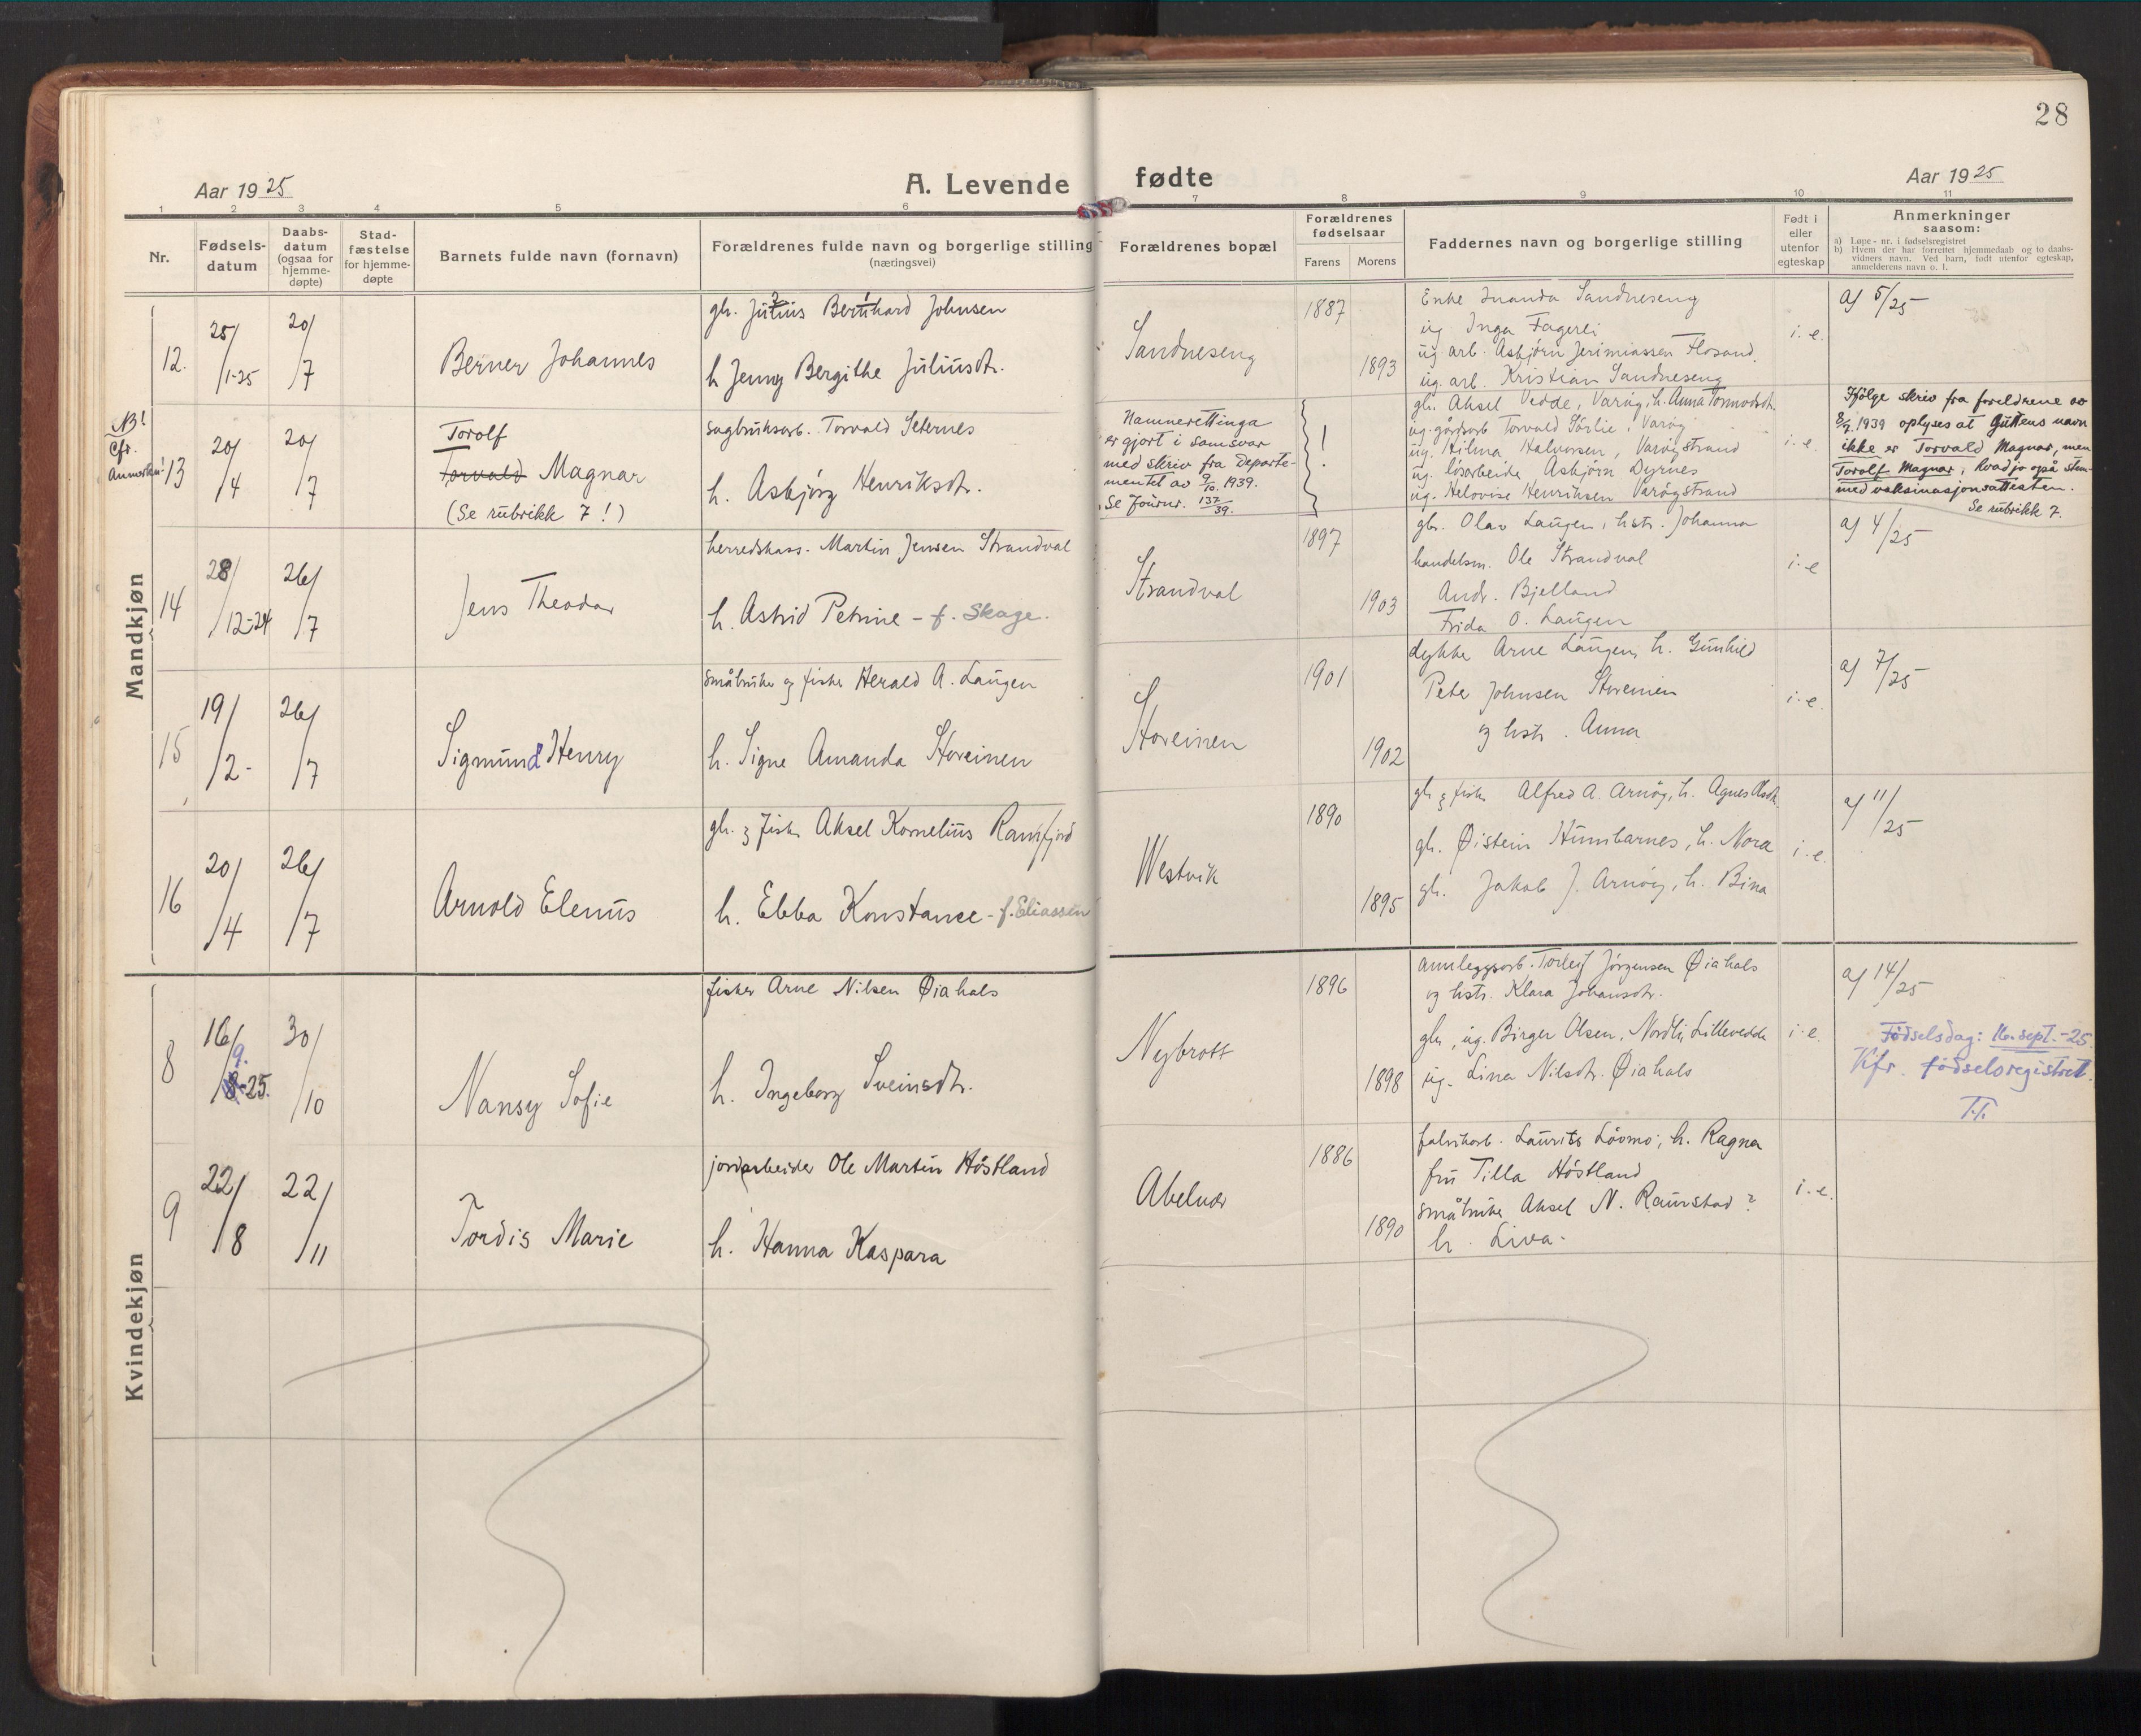 28
Aar 1925
A. Levende fødte
Aar 1925
1 2 3 4 5 6 7 8 9 10 11
Nr.
Fødsels-
datum
Daabs-
datum
(ogsaa for
hjemme-
døpte)
Stad-
fæstelse
for hjemme-
døpte
Barnets fulde navn (fornavn)
Forældrenes fulde navn og borgerlige stilling
(næringsvei)
Forældrenes bopæl
Forældrenes
fødselsaar
Farens Morens
Faddernes navn og borgerlige stilling
Født i
eller
utenfor
egteskap
Anmerkninger
saasom:
a) Løpe-nr. i fødselsregistret
b) Hvem der har forrettet hjemmedaab og to daabs-
vidners navn. Ved barn, født utenfor egteskap,
anmelderens navn o. l.
Mandkjøn
12. 25/1-25 20/7
Berner Johannes
gbr. Julius Bernhard Johnsen
h Jenny Bergithe Juliusdtr.
Sandneseng
1887
1893
Enke Sandneseng
ug Inga Fagerli
ug. arb. Asbjørn Jerimiassen Flosand.
ug. arb. Kristian Sandneseng
i. e.
aj 5/25
NB!
Cfr.
Anmerkn!
13 20/4 20/7
Torolf
Torvald Magnar
(Se rubrikk 7!)
sagbruksarb. Torvald Seternes
h. Asbjørg Henriksdtr.
Namnerettinga
er gjort i samsvar
med skriv fra Departe-
mentet av 9/10 1939.
Se Journr. 137/39.
!
gbr. Aksel Vedde, Varøy, h. Anna Tormodsdtr.
ug. gårdsarb Torvald Sørlie, Varøy
ug. Hilma Halvorsen, Varøystrand
ug. løsarbeider Asbjørn Dyrnes
ug. Helovise Henriksen Varøystrand
i. e.
Ifølge skriv fra foreldrene av
1939 oplyses at Guttens navn
ikke er Torvald Magnar, men
Torolf Magnar, hvad jo også stem-
med vaksinasjonsattesten.
Se rubrikk 7.
14 28/12-24 26/7
Jens Theodor
herredskass. Martin Jensen Strandval
h. Astrid Petrine - f. Skage.
Strandval
1897
1903
gbr. Olav Laugen, hstr. Johanna
handelsm. Ole Strandval
Andr. Bjelland
Frida O. Laugen
i. e
aj 4/25
15 19/2- 26/7
Sigmund Henry
småbruker og fisker Herald A. Laugen
h. Signe Amanda Storeinen
Storeinen
1901
1902
dykker Arne Laugen, h. Gunhild
Peter Johnsen Storeinen
og hstr. Anna
i. e.
aj 7/25
16 20/4 26/7
Arnold Elenus
gbr. og fisker Aksel Kornelius Ramfjord
h. Ebba Konstance - f. Eliassen
Westvik
1890
1895
gbr og fisker Alfred A. Arnøy, h. Agnes Olsdtr.
gbr. Øistein Humbarnes, h. Nora
gbr. Jakob J. Arnøy, h. Bina
i. e.
aj 11/25
Kvindekjøn
8 16/9. 8-25. 30/10
Nansy Sofie
fisker Arne Nilsen Øiahals
h. Ingeborg Sveinsdtr.
Nybrott
1896
1898
annleggsarb. Torleif Jørgensen Øiahals
og hstr. Klara Johansdtr.
gbr, ug. Birger Olsen, Nordli, Lillevedde
ug. Lina Nilsdtr. Øiahals
i. e.
aj 14/25
Fødselsdag: 16. sept. -25.
Kfr. fødselsregistret.
T.T.
9 22/8 22/11
Tordis Marie
jordarbeider Ole Martin Høstland
h. Hanna Kaspara
Abelvær
1886
1890
fabrikarb. Laurits Løvmo, h. Ragna
fru Tilla Høstland
småbruker Aksel N. Ramstad ?
h. Liva.
i. e.